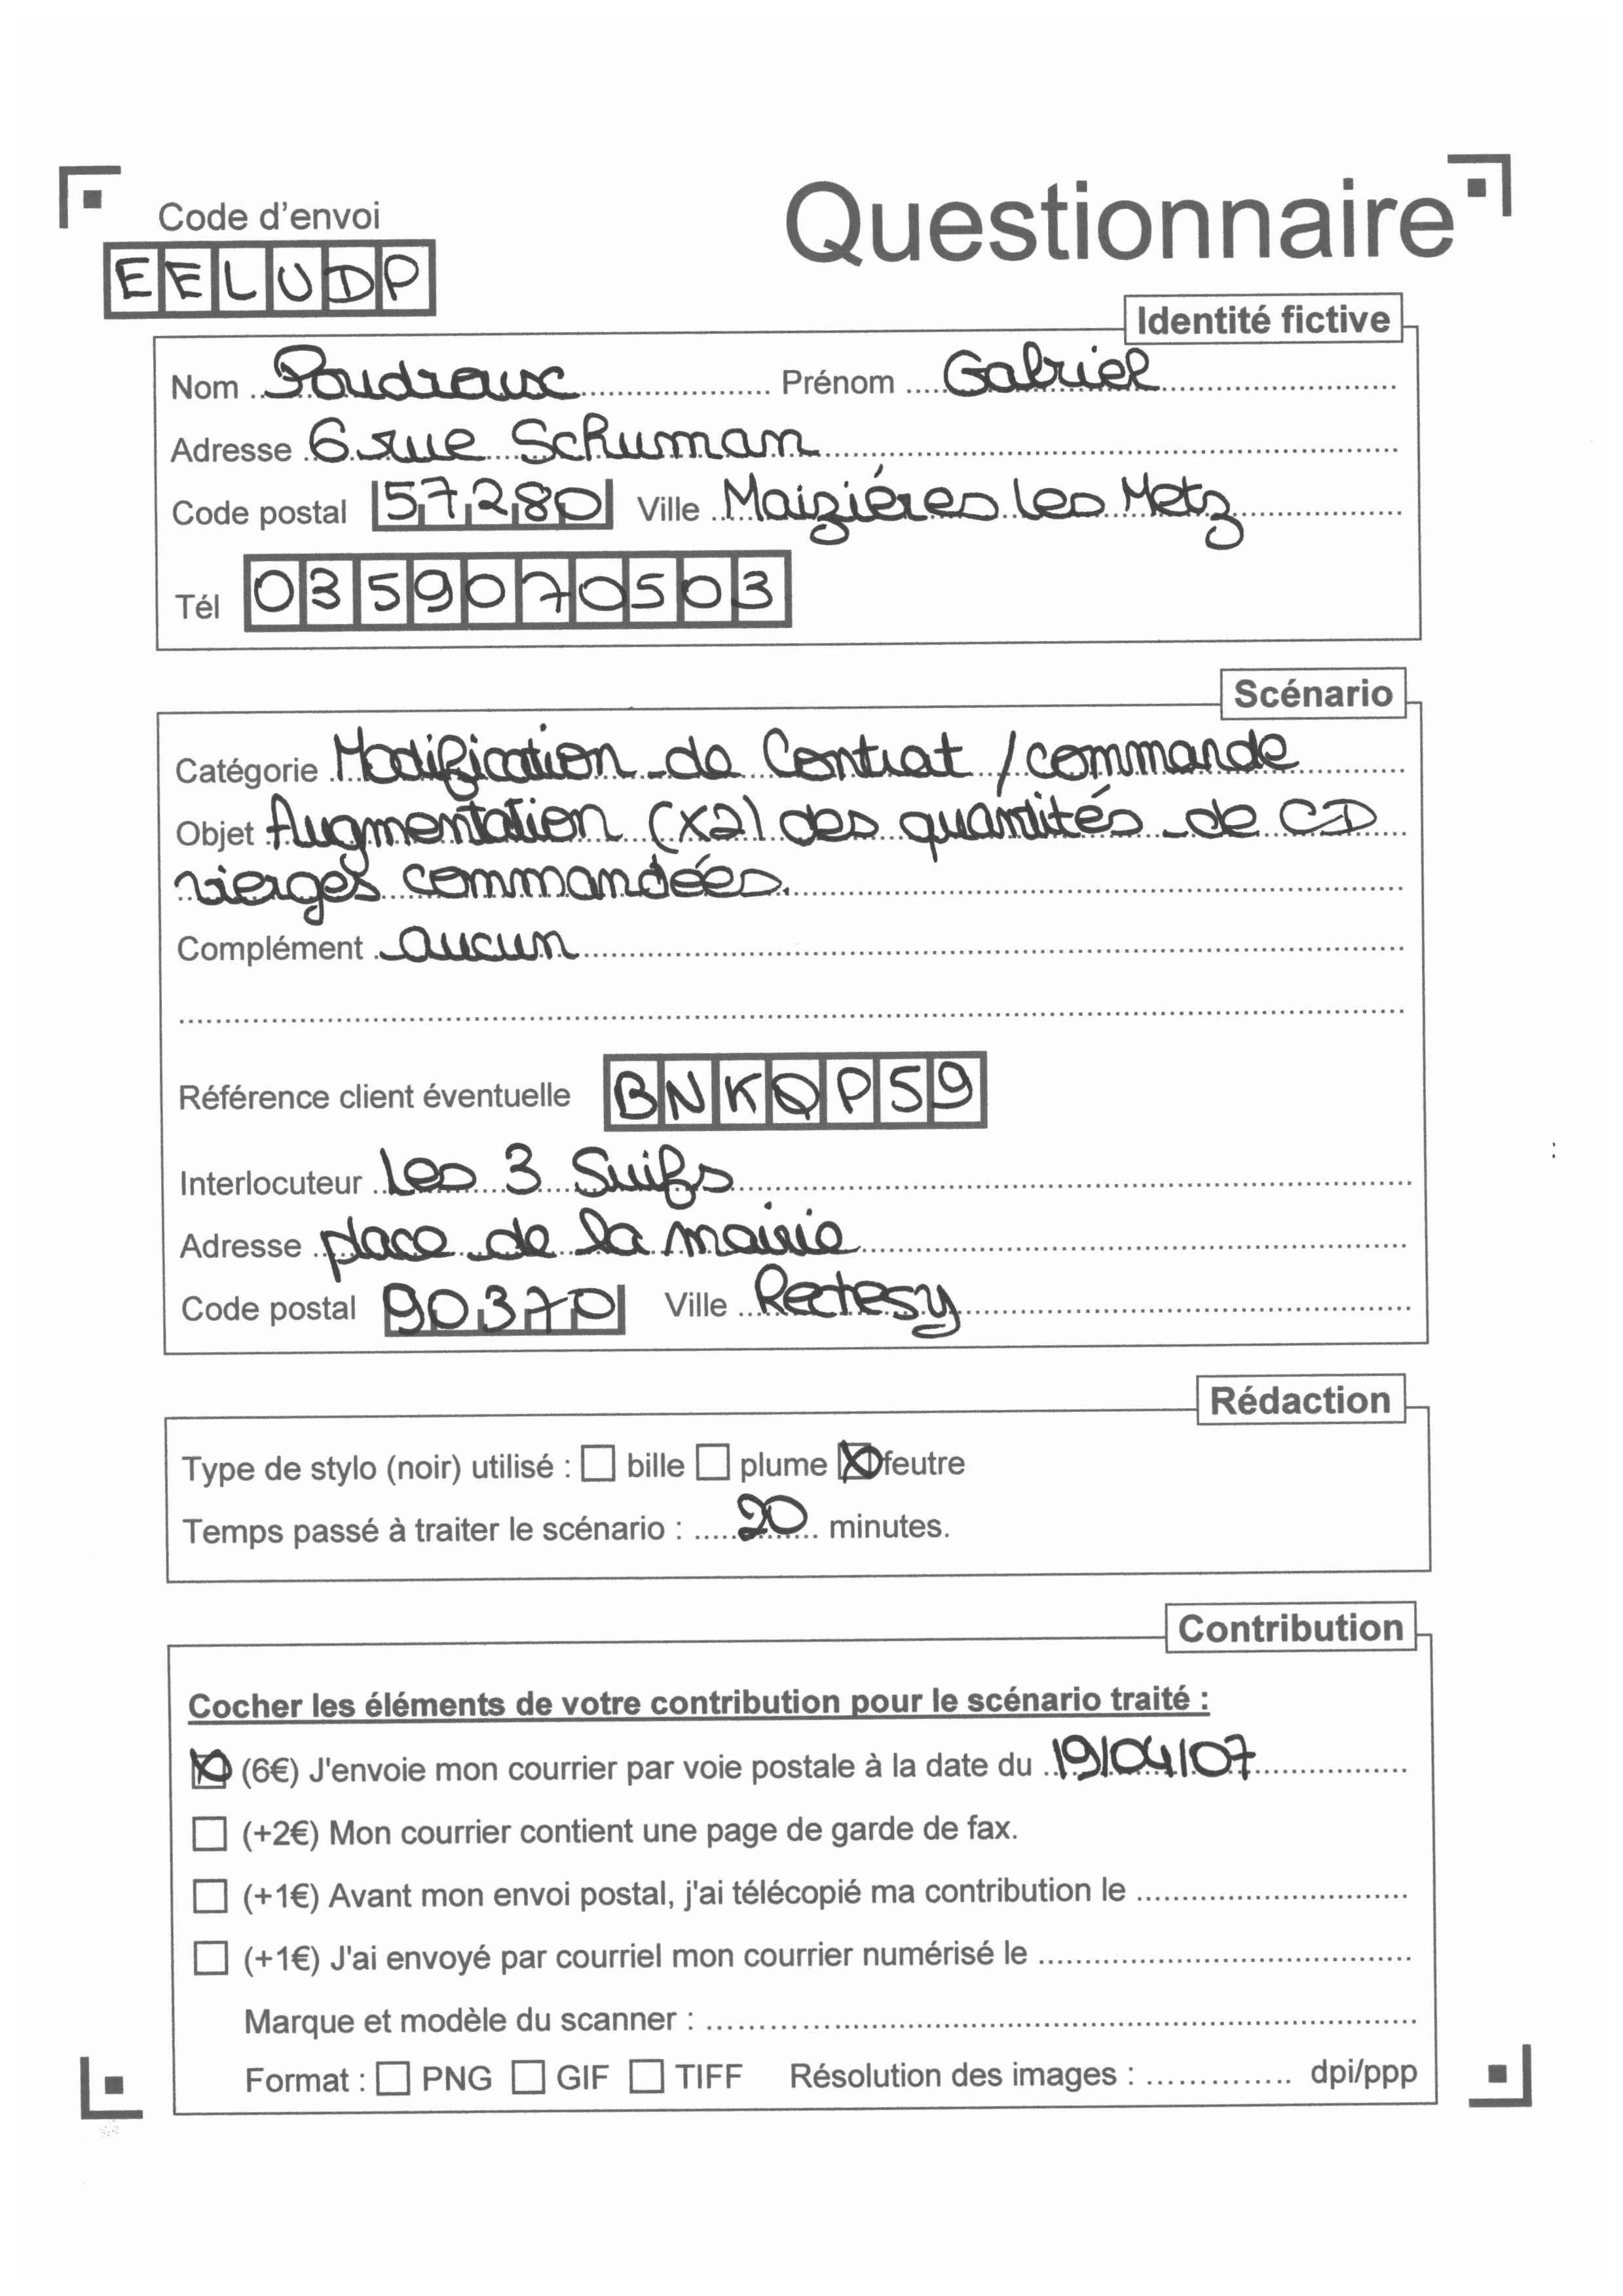 Code d'envoi
Questionnaire
EELUDP
Identité fictive
Nom Poudraux Prénom Gabriel
Adresse 6 rue Schuman
Code postal 57280 Ville Maiziéres les Metz
Tél 0359070503
Scénario
Catégorie Modification de Contrat / commande
Objet Augmentation (x2) des quantités de CD
vierges commandées.
Complément aucun
Référence client éventuelle BNKQP59
Interlocuteur Les 3 Suifs
Adresse place de la mairie
Code postal 90370 Ville Rechesy
Rédaction
Type de stylo (noir) utilisé : bille plume feutre
Temps passé à traiter le scénario : 20 minutes.
Contribution
Cocher les éléments de votre contribution pour le scénario traité :
(6€) J'envoie mon courrier par voie postale à la date du 19/04/07
(+2€) Mon courrier contient une page de garde de fax.
(+1€) Avant mon envoi postal, j'ai télécopié ma contribution le
(+1€) J'ai envoyé par courriel mon courrier numérisé le
Marque et modèle du scanner :
Format : PNG GIF TIFF Résolution des images : dpi/ppp